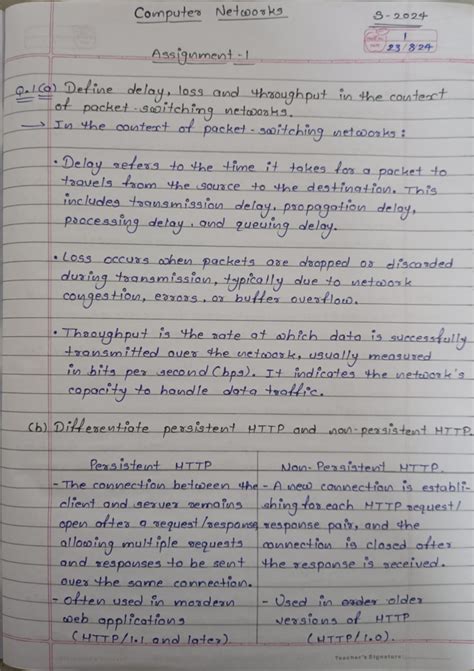 Computer Networks
S-2024
1
23/8/24
Assignment-1
Q.1(a) Define delay, loss and throughput in the context
of packet-switching networks.
→ In the context of packet-switching networks:
• Delay refers to the time it takes for a packet to
travels from the source to the destination. This
includes transmission delay, propagation delay,
processing delay, and queuing delay.
• Loss occurs when packets are dropped or discarded
during transmission, typically due to network
congestion, errors, or buffer overflow.
• Throughput is the rate at which data is successfully
transmitted over the network, usually measured
in bits per second (bps). It indicates the network's
capacity to handle data traffic.
(b) Differentiate persistent HTTP and non-persistent HTTP.
Persistent HTTP
- The connection between the
client and server remains
open after a request/response
allowing multiple requests
and responses to be sent
over the same connection.
- Often used in mordern
web applications
(HTTP/1.1 and later)
Non-Persistent HTTP.
- A new connection is establi-
shing for each HTTP request/
response pair, and the
connection is closed after
the response is received.
- Used in order older
versions of HTTP
(HTTP/1.0).
Teacher's Signature